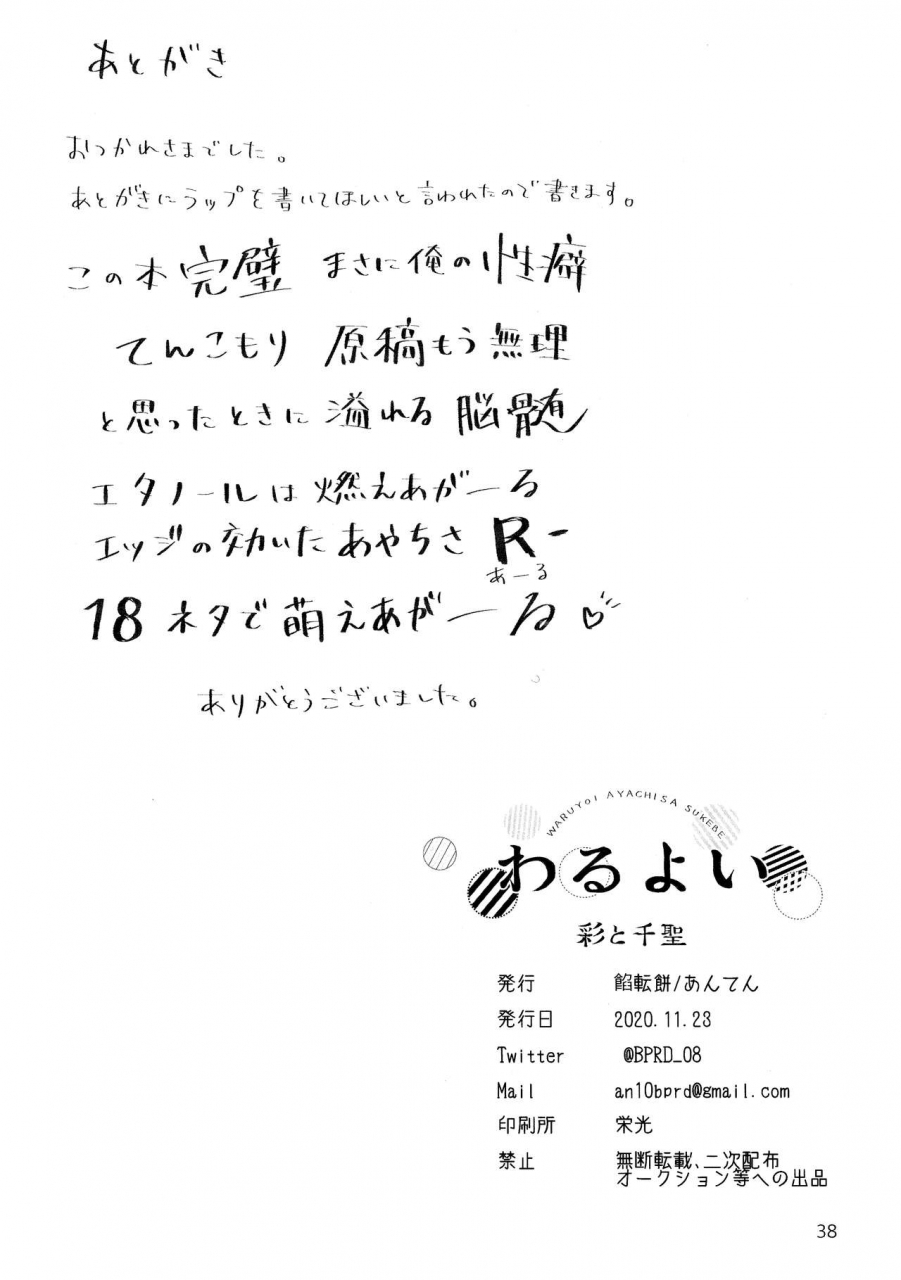 あとがき
おつかれさまでした。
あとがきにラップを書いてほしいと言われたので書きます。
この本 完璧 まさに俺の性癖
てんこもり 原稿もう無理
と思ったときに 溢れる 脳髄
エタノールは燃えあがーる
エッジの効いた あやちさ R-
あーる
18 ネタで萌えあがーる♡
ありがとうございました。
WARUYOI AYACHISA SUKEBE
わるよい
彩と千聖
発行 餡転餅/あんてん
発行日 2020.11.23
Twitter @BPRD_08
Mail an10bprd@gmail.com
印刷所 栄光
禁止 無断転載、二次配布
オークション等への出品
38